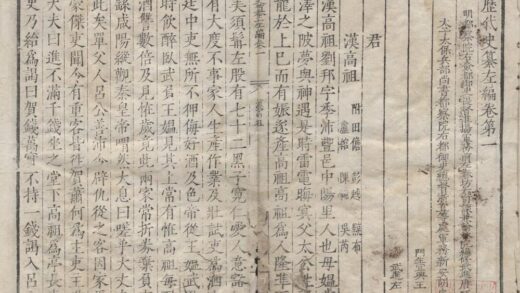 歷代史纂左編卷第一
明都察院右僉都御史
太子太保兵部尚書都察院右都御史新安胡
門生
君
漢高祖 附 田儋 彭越 黥布
盧綰 陳豨 吳芮
漢高祖劉邦字季沛豐邑中陽里人也母媼
澤之陂夢與神遇是時雷電晦冥父太公
龍於上已而有娠遂產高祖高祖為人隆準
左編卷一
夫須髯左股有七十二黑子寬仁愛人意豁
有大度不事家人生產作業及壯試吏為泗
廷中吏無所不狎侮好酒及色嘗從王媼武
時飲醉臥武負王媼見其上常有怪高祖每
酒讎數倍及見怪歲竟此兩家常折券棄負
繇咸陽縱觀秦皇帝喟然大息曰嗟乎大丈
此矣單父人呂公善沛令辟仇從之客因家
豪傑吏聞令有重客皆往賀蕭何為主吏主
大夫曰進不滿千錢坐之堂下高祖為亭長
吏乃紿為謁曰賀錢萬實不持一錢謁入呂